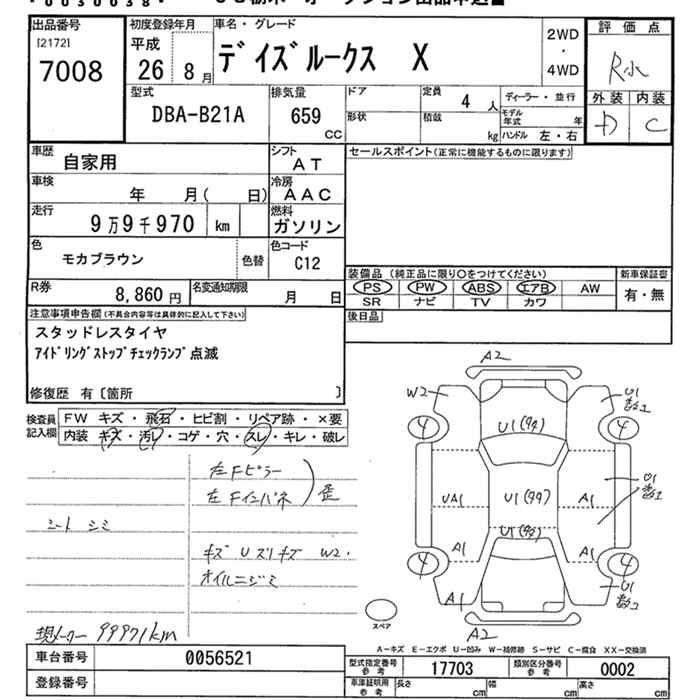 出品番号
[2172]
7008
初度登録年月
平成
26 8月
車名・グレード
デイズルークス X
2WD
・
4WD
評価点
R
外装 内装
C
型式
DBA-B21A
排気量
659
CC
ドア
形状
定員
4 人
積載
kg
ディーラー・並行
モデル年式 年
ハンドル 左・右
車歴
自家用
シフト
AT
セールスポイント(正常に機能するものに限ります)
車検
年 月( 日)
冷房
AAC
走行
9万9千970 km
燃料
ガソリン
色
モカブラウン
色替
色コード
C12
装備品 (純正品に限り○をつけてください)
新車保証書
PS PW ABS エアB AW
有・無
SR ナビ TV カワ
R券
8,860円
名変通知期限
月 日
後日品
注意事項申告欄(不具合内容等は具体的に記入して下さい)
スタッドレスタイヤ
ｱｲﾄﾞﾘﾝｸﾞｽﾄｯﾌﾟﾁｪｯｸﾗﾝﾌﾟ点滅
修復歴 有〔箇所 〕
検査員記入欄
FW キズ・飛石・ヒビ割・リペア跡・×要
内装・キズ・汚レ・コゲ・穴・スレ・キレ・破レ
左Fピラー
左Fインパネ
歪
シートシミ
キズ Uズリキズ W2・
オイルニジミ
現メーター 99971km
A2
W2
U1
4
4
U1(99)
U1
UA1
U1(99)
A1
A1
A1
4
4
A1
U1
A2
スペア
A－キズ E－エクボ U－凹み W－補修跡 S－サビ C－腐食 XX－交換済
車台番号
0056521
型式指定番号
参考
17703
類別区分番号
参考
0002
登録番号
車庫証明用
参考
長さ cm
幅 cm
高さ cm